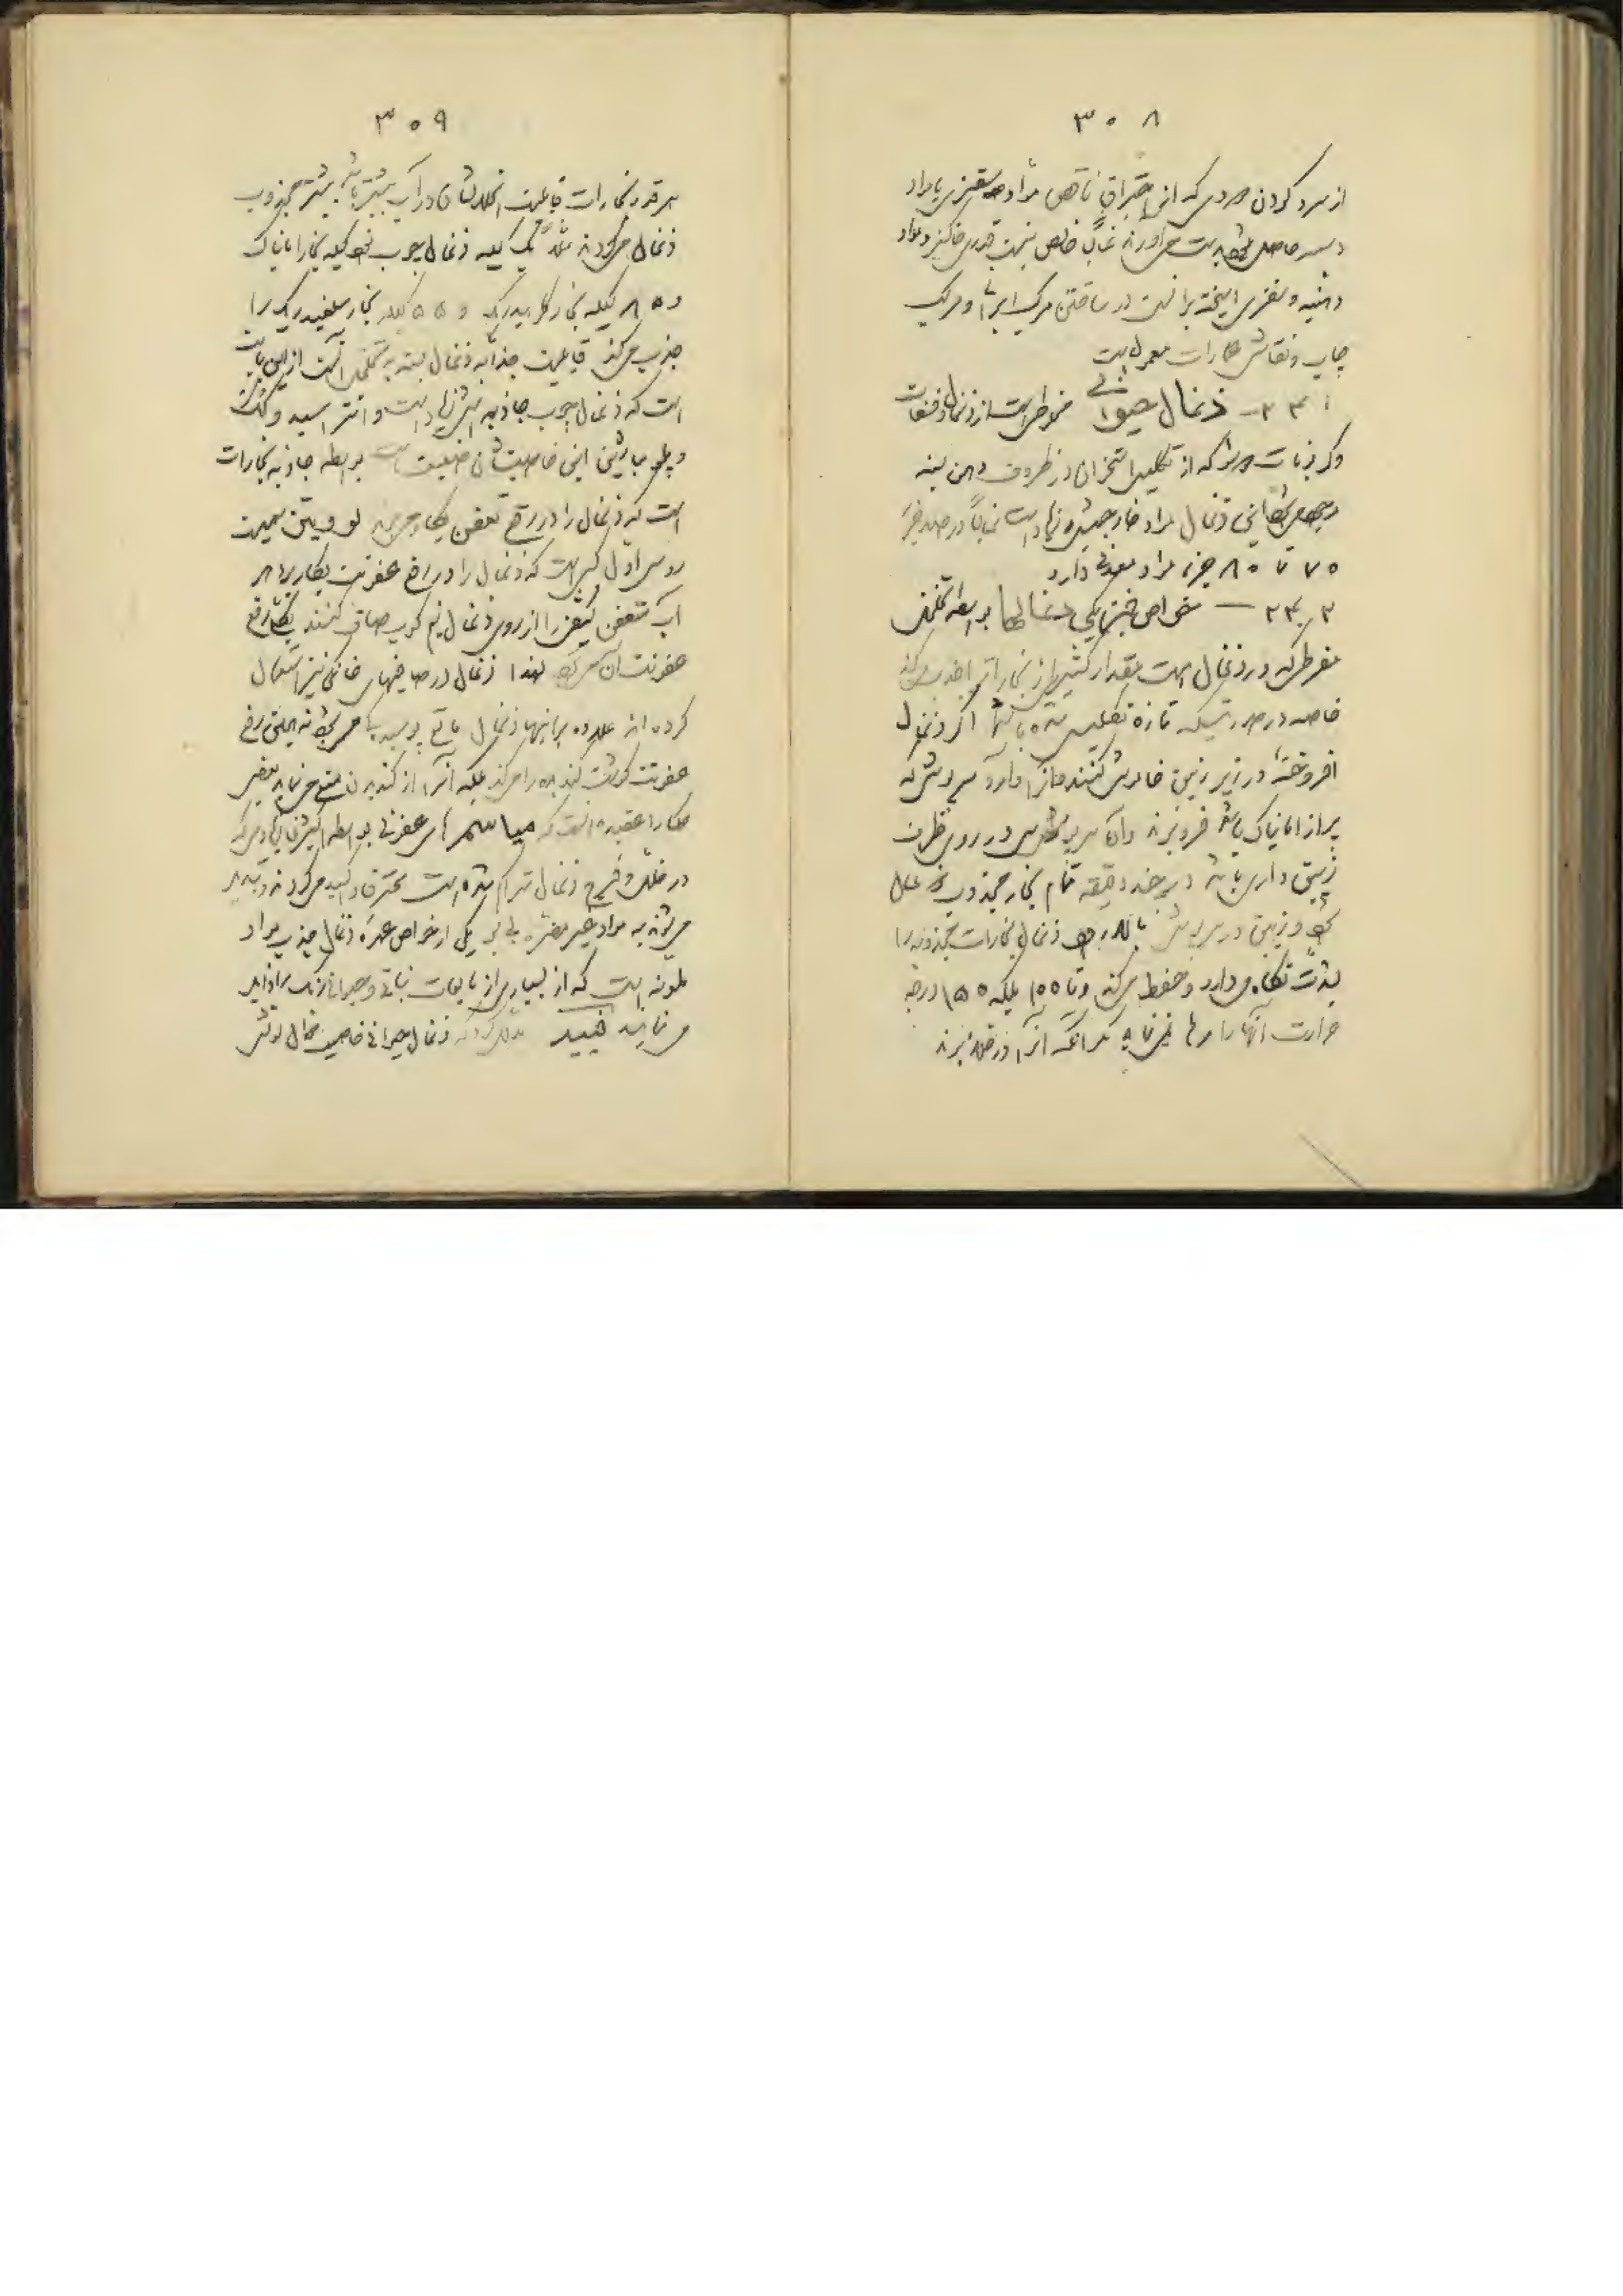 ۳۰۸
از سرد کردن دودی که از احتراق ناقص مواد سقزی یا مواد
دسمه حاصل میشود بدست می‌آورند غالباً خالص نیست قدری خاکستر و مواد
دهنیه و سقزی آمیخته بر آنست در ساختن مرکب ایرانی و مرکب
چاپ و نقاشی عمارات معمول است
۲۳۱ — ذغال حیوانی مخلوطی است از ذغال و فسفات
و کربنات که از تکلیس استخوان در ظروف دهن بسته
این ذغال مواد خارجیش زیاد است غالباً در صد جزء
۷۵ تا ۸۰ جزء مواد معدنی دارد
۲۳۲ — خواص فیزیکی ذغالها بواسطه تخلخل
مفرطی که در ذغال است مقدار کثیری از بخارات را جذب میکند
خاصه در صورتیکه تازه تکلیس شده باشد اگر ذغال
افروخته را در زیر زیبق خاموش کنند و آنرا وارد سرپوشی که
پر از امانیاک باشد فرو برند و آن سرپوش در روی ظرف
زیبق داری باشد در چند دقیقه تمام بخار مجذوب ذغال
شود و زیبق در سرپوش بالا رود ذغال بخارات مجذوبه را
بشدت نگاه میدارد و حفظ میکند و تا ۱۰۰ بلکه ۱۵۰ درجه
حرارت آنها را رها نمی‌نماید مگر آنکه آنرا در خلاء برند
۳۰۹
هر قدر بخارات قابلیت انحلالشان در آب بیشتر باشد بیشتر مجذوب
ذغال میگردند مثلاً یک کیله ذغال چوب نود کیله بخار امانیاک
و ۸۵ کیله بخار کلریدریک و ۵۵ کیله بخار سلفیدریک را
جذب میکند قابلیت جذابه ذغال بسته به تخلخل آنست از این بابت
است که ذغال چوب جاذبه‌اش زیاد است و انتراسیت و کک
و پلمباژین این خاصیتشان ضعیف است بواسطه جاذبه بخارات
است که ذغال را در رفع تعفن بکار میبرند لوویتس شیمیست
روسی اول کسی است که ذغال را در رفع عفونت بکار برد هر
آب متعفن کثیفی را از روی ذغال نیم کوب صاف کنند بکلی رفع
عفونت آن میشود لهذا ذغال در صافیهای خانگی نیز استعمال
کرده‌اند علاوه بر اینها ذغال مانع پوسیدگی میشود نه اینکه رفع
عفونت گوشت گندیده را میکند بلکه آنرا از گندیدن منع مینماید بعضی
حکما را عقیده آنست که میاسمهای عفونی بواسطه اکسیژنی که
در خلل و فرج ذغال متراکم شده است محترق و اکسید میگردند و تبدیل
میشوند به مواد غیر مضره بی‌بو یکی از خواص عمدهٔ ذغال جذب مواد
ملونه است که از بسیاری از مایعات نباتی و حیوانی رنگ را زایل
مینماید فیپیه ذغال حیوانی خاصیت